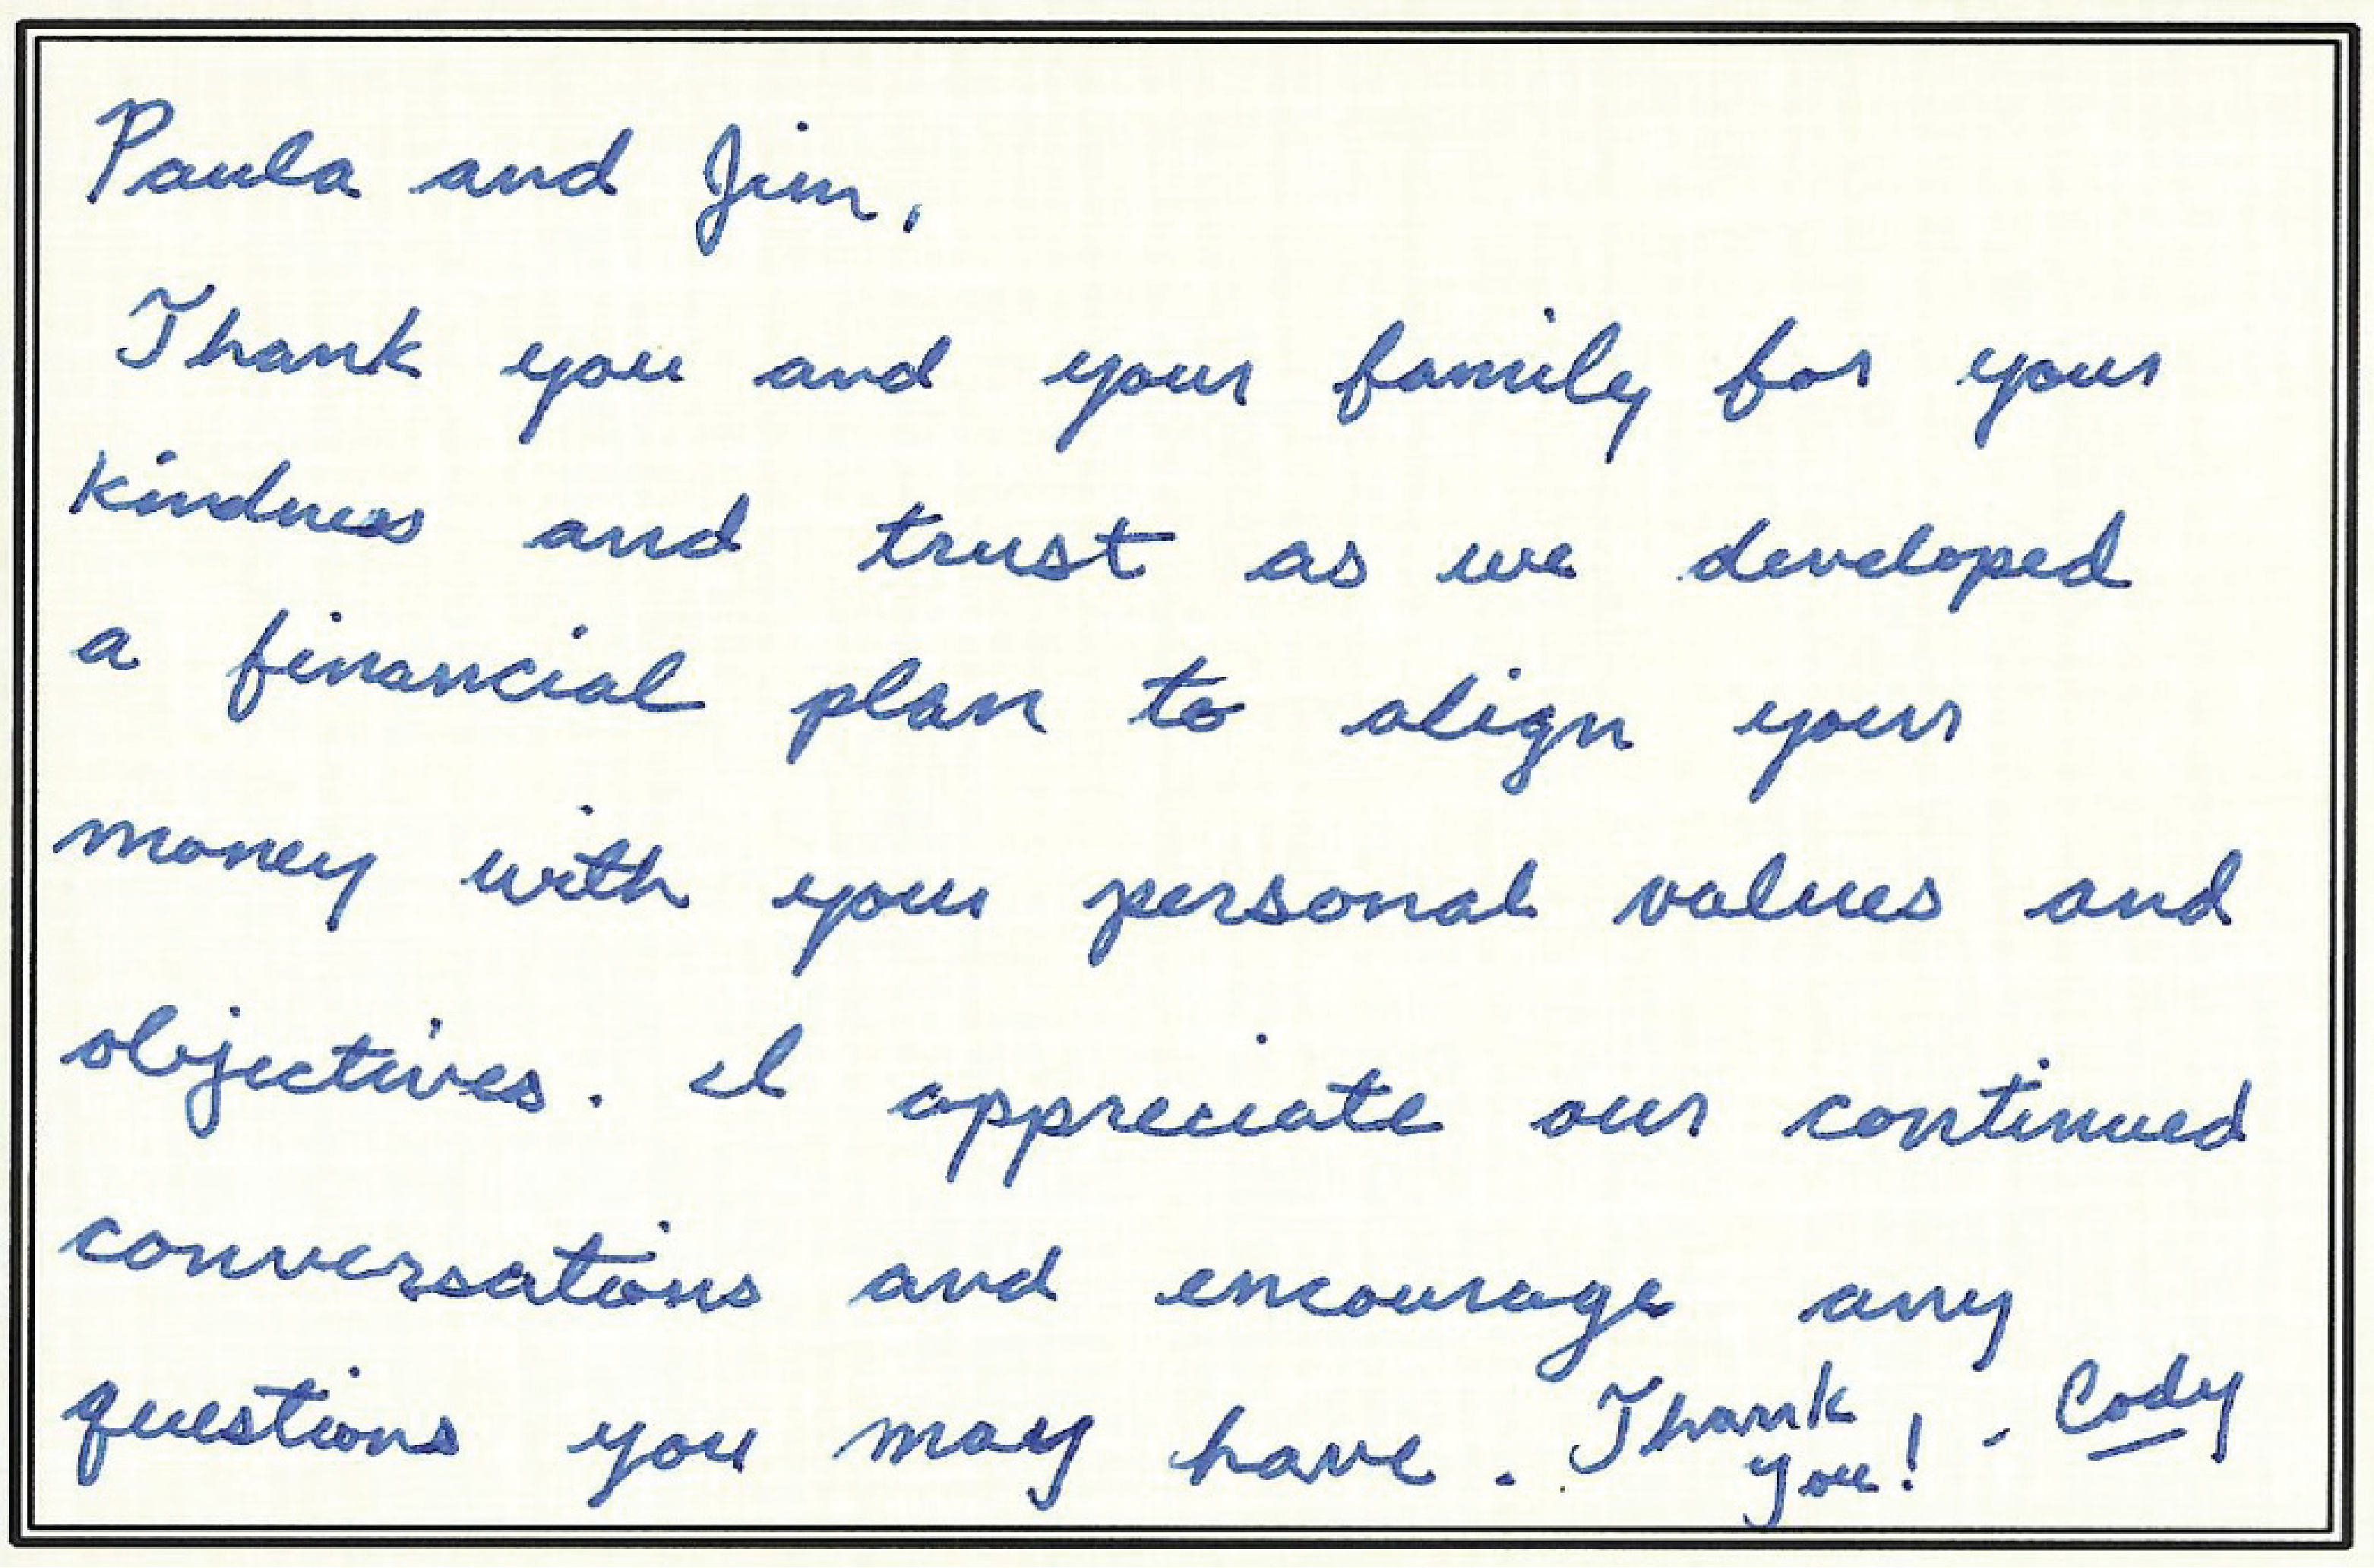 Paula and Jim,
Thank you and your family for your
kindness and trust as we developed
a financial plan to align your
money with your personal values and
objectives. I appreciate our continued
conversations and encourage any
questions you may have. Thank you! - Cody